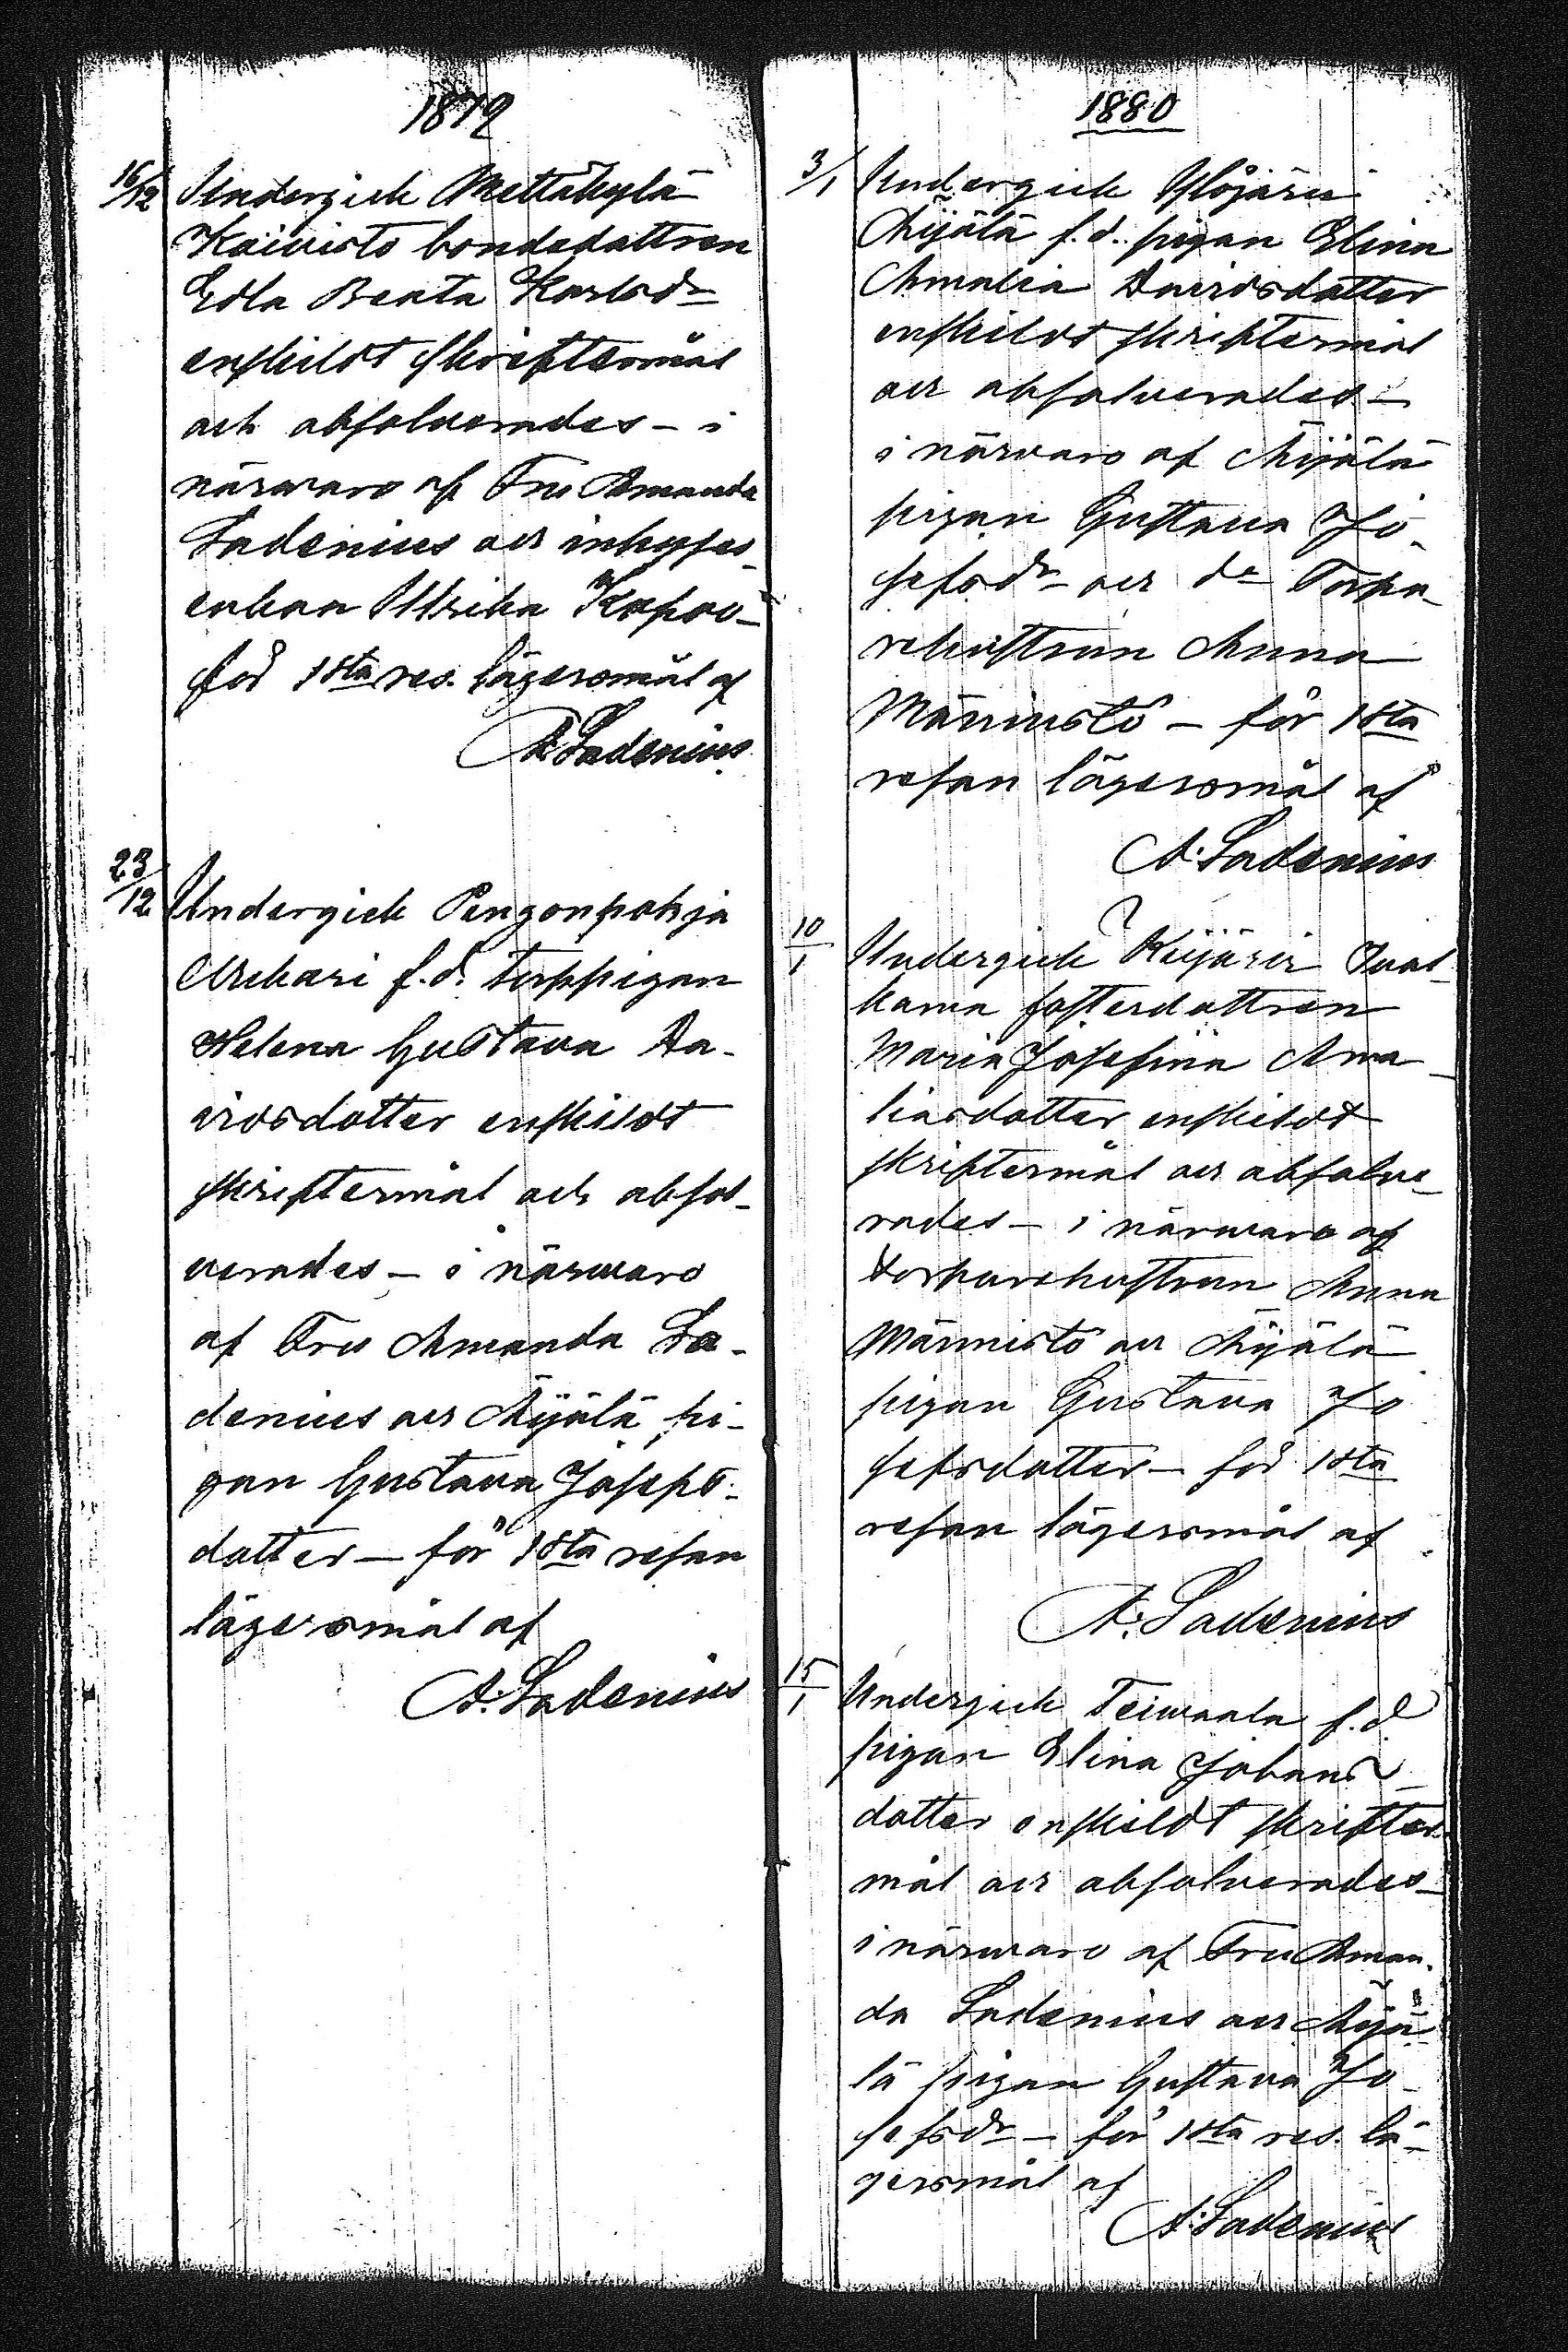 1879
16/12 Undergick Mettäkylä
Koivisto bondedottren
Edla Beata Karlsdr
enskildt skriftermål
och absolverades – i
närvaro af Fru Amanda
Ladenius och inhyses-
enkan Ulrika Kapoo –
för 1sta res. lägersmål af
A. Ladenius
23/12 Undergick Pengonpohja
Uskari f.d. torppigan
Helena Gustava Da-
vidsdotter enskildt
skriftermål och absol-
verades – i närvaro
af Fru Amanda La-
denius och Äijälä pi-
gan Gustava Josefs-
dotter – för 1sta resan
lägersmål af
A. Ladenius
1880
3/1 Undergick Ylöjärvi
Äijälä f.d. pigan Elina
Amalia Davidsdotter
enskildt skriftermål
och absolverades –
i närvaro af Äijälä
pigan Gustava Jo-
sefsdr och Torpa-
rehustrun Anna
Männistö – för 1sta
resan lägersmål af
A. Ladenius
10/1 Undergick Keijärvi
kama fosterdottren
Maria Josefina Ama-
liasdotter enskildt
skriftermål och absolve-
rades – i närvaro af
torparehustrun Anna
Männistö och Äijälä
pigan Gustava Jo
sefsdotter – för 1sta
resan lägersmål af
A. Ladenius
15/1 Undergick Teivaala f.d.
pigan Elina Johans-
dotter enskildt skrifter-
mål och absolverades –
i närvaro af Fru Aman-
da Ladenius och Äijä-
lä pigan Gustava Jo-
sefsdr – för 1sta res. lä-
gersmål af
A. Ladenius